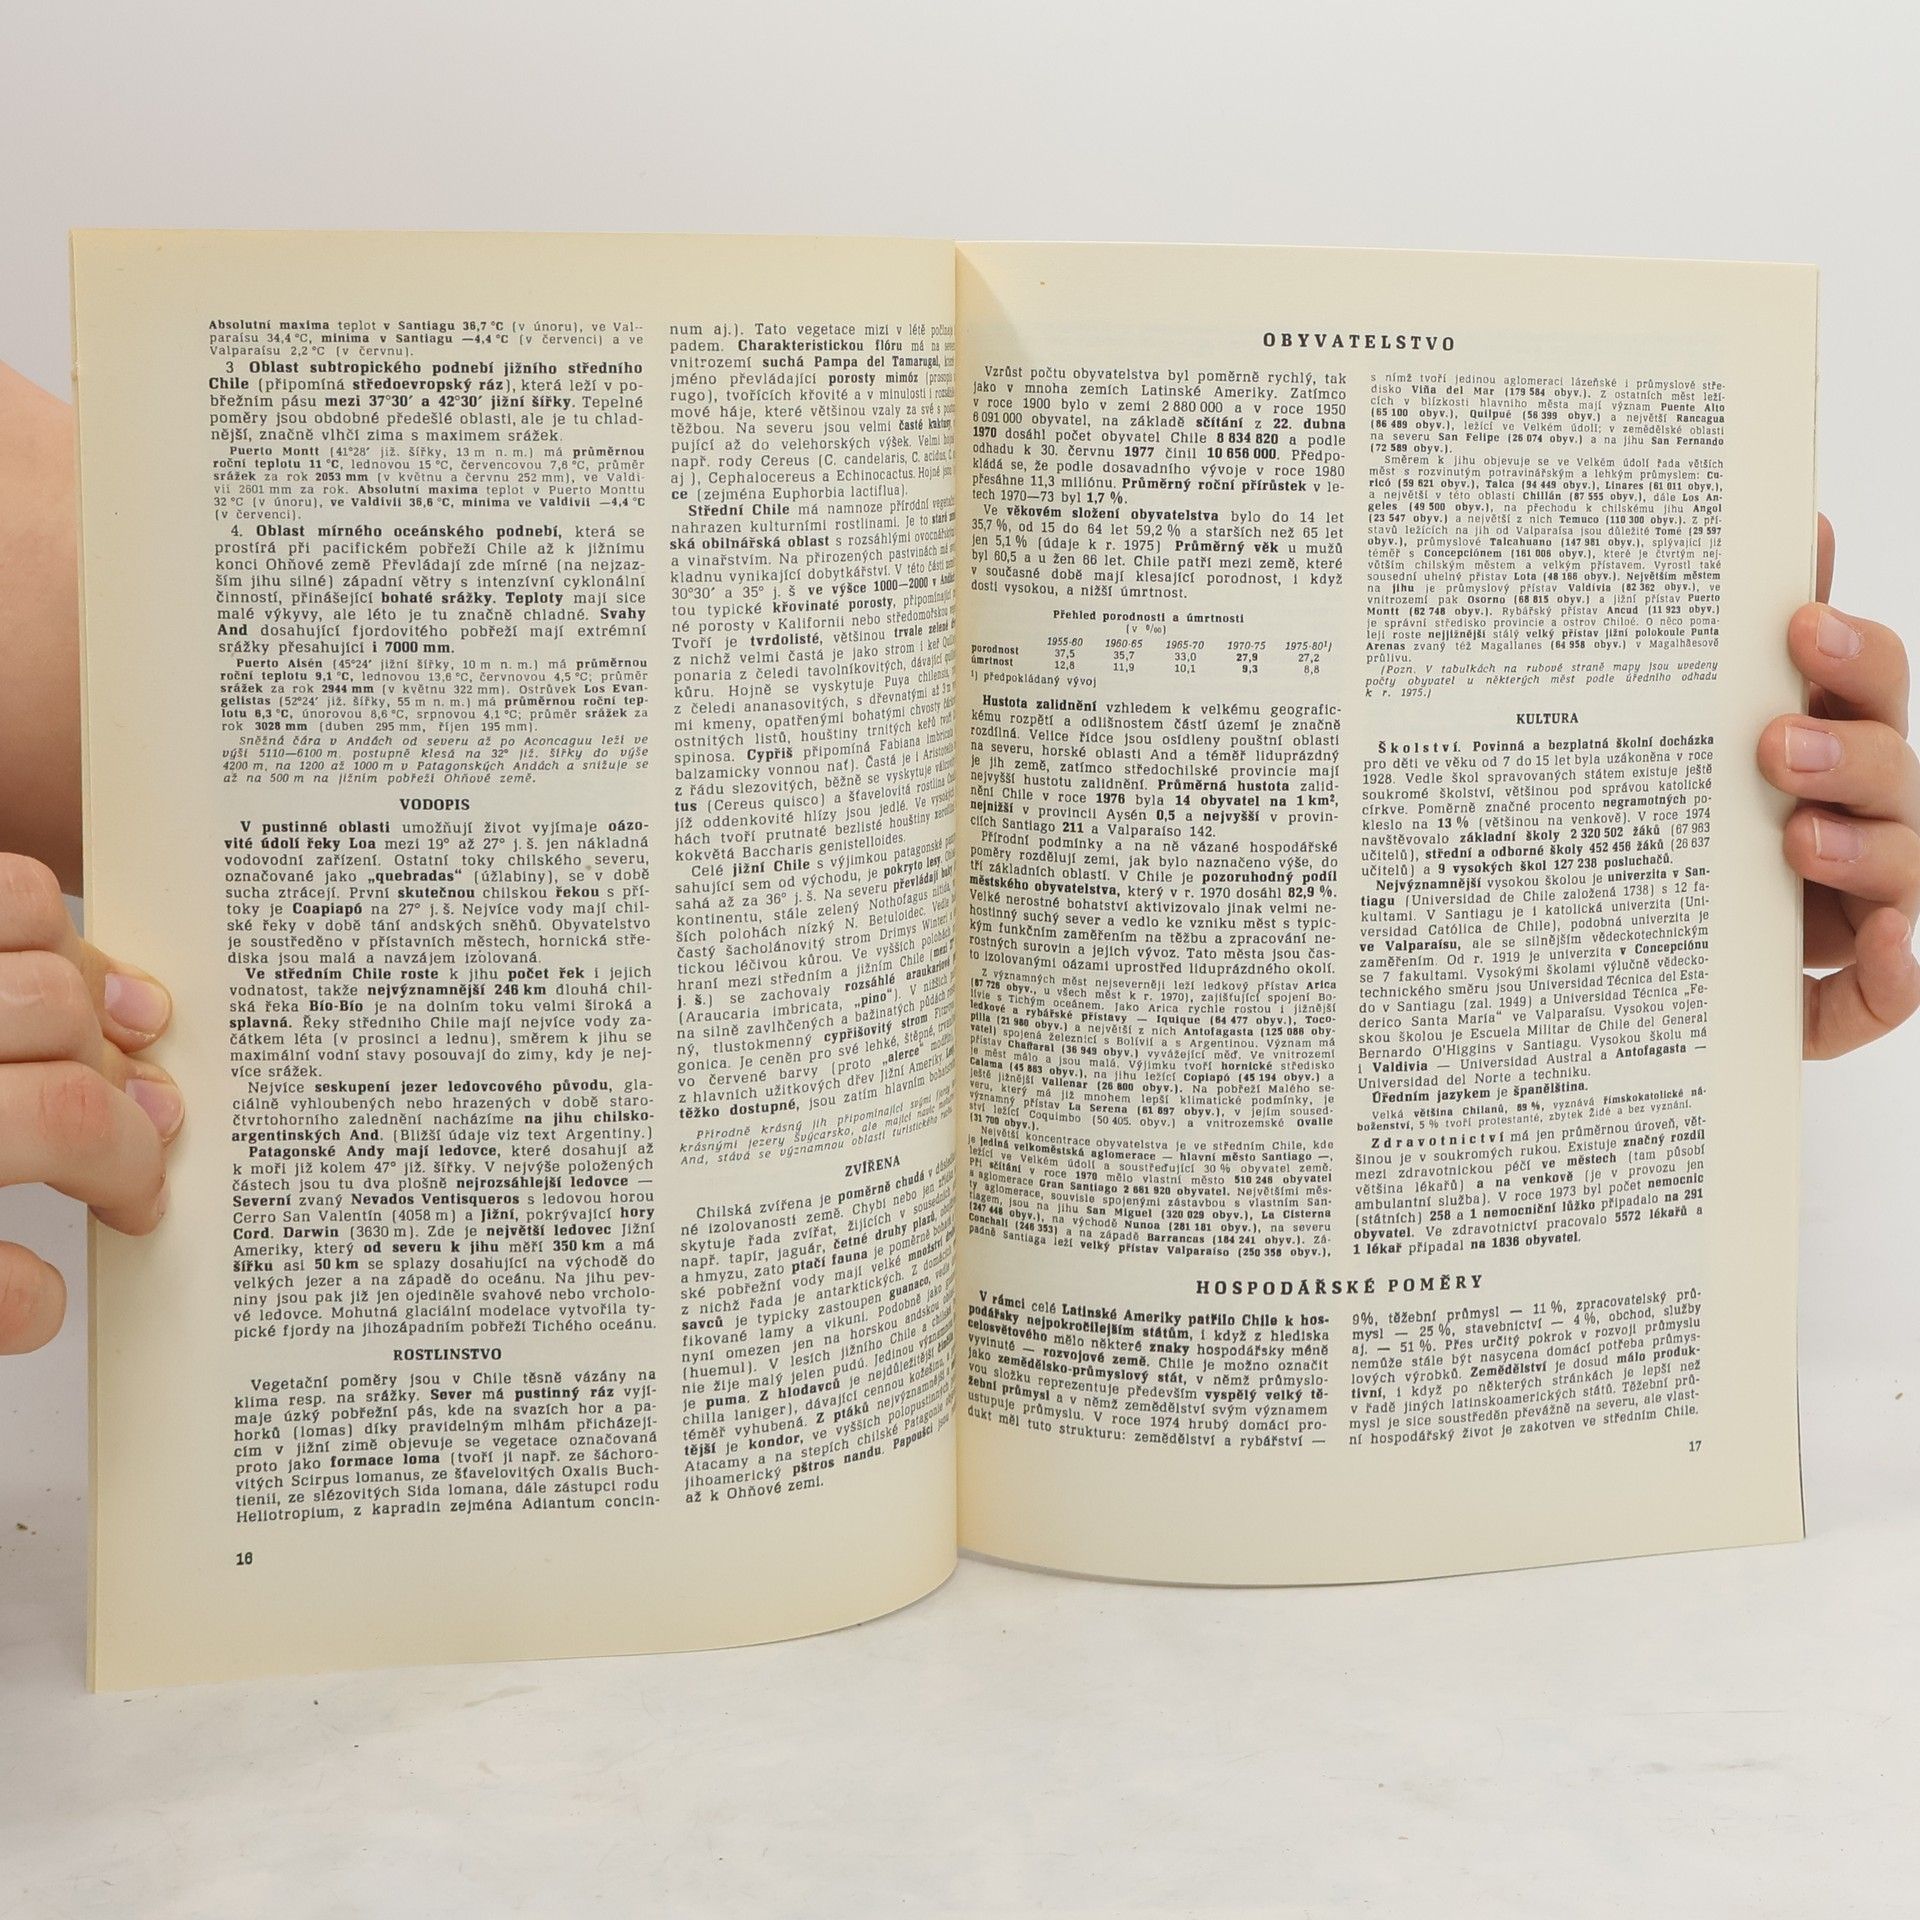 Absolutní maxima teplot v Santiagu 36,7 °C (v únoru), ve Val--
paraísu 34,4 °C, minima v Santiagu —4,4 °C (v červenci) a ve
Valparaísu 2,2 °C (v červnu).
3 Oblast subtropického podnebí jižního středního
Chile (připomíná středoevropský ráz), která leží v po-
břežním pásu mezi 37°30′ a 42°30′ jižní šířky. Tepelné
poměry jsou obdobné předešlé oblasti, ale je tu chlad-
nější, značně vlhčí zima s maximem srážek.
Puerto Montt (41°28′ již. šířky, 13 m n. m.) má průměrnou
roční teplotu 11 °C, lednovou 15 °C, červencovou 7,6 °C, průměr
srážek za rok 2053 mm (v květnu a červnu 252 mm), ve Valdi-
vii 2601 mm za rok. Absolutní maxima teplot v Puerto Monttu
32 °C (v únoru), ve Valdivii 36,6 °C, minima ve Valdivii —4,4 °C
(v červenci).
4. Oblast mírného oceánského podnebí, která se
prostírá při pacifickém pobřeží Chile až k jižnímu
konci Ohňové země Převládají zde mírné (na nejzaz-
ším jihu silné) západní větry s intenzívní cyklonální
činností, přinášející bohaté srážky. Teploty mají sice
malé výkyvy, ale léto je tu značně chladné. Svahy
And dosahující fjordovitého pobřeží mají extrémní
srážky přesahující i 7000 mm.
Puerto Aisén (45°24′ jižní šířky, 10 m n. m.) má průměrnou
roční teplotu 9,1 °C, lednovou 13,6 °C, červnovou 4,5 °C; průměr
srážek za rok 2944 mm (v květnu 322 mm). Ostrůvek Los Evan-
gelistas (52°24′ již. šířky, 55 m n. m.) má průměrnou roční tep-
lotu 6,3 °C, únorovou 8,6 °C, srpnovou 4,1 °C; průměr srážek za
rok 3028 mm (duben 295 mm, říjen 195 mm).
Sněžná čára v Andách od severu až po Aconcaguu leží ve
výši 5110—6100 m. postupně klesá na 32° již. šířky do výše
4200 m, na 1200 až 1000 m v Patagonských Andách a snižuje se
až na 500 m na jižním pobřeží Ohňové země.
VODOPIS
V pustinné oblasti umožňují život vyjímaje oázo-
vité údolí řeky Loa mezi 19° až 27° j. š. jen nákladná
vodovodní zařízení. Ostatní toky chilského severu,
označované jako „quebradas“ (úžlabiny), se v době
sucha ztrácejí. První skutečnou chilskou řekou s pří-
toky je Coapiapó na 27° j. š. Nejvíce vody mají chil-
ské řeky v době tání andských sněhů. Obyvatelstvo
je soustředěno v přístavních městech, hornická stře-
diska jsou malá a navzájem izolovaná.
Ve středním Chile roste k jihu počet řek i jejich
vodnatost, takže nejvýznamnější 246 km dlouhá chil-
ská řeka Bío-Bío je na dolním toku velmi široká a
splavná. Řeky středního Chile mají nejvíce vody za-
čátkem léta (v prosinci a lednu), směrem k jihu se
maximální vodní stavy posouvají do zimy, kdy je nej-
více srážek.
Nejvíce seskupení jezer ledovcového původu, gla-
ciálně vyhloubených nebo hrazených v době staro-
čtvrtohorního zalednění nacházíme na jihu chilsko-
argentinských And. (Bližší údaje viz text Argentiny.)
Patagonské Andy mají ledovce, které dosahují až
k moři již kolem 47° již. šířky. V nejvýše položených
částech jsou tu dva plošně nejrozsáhlejší ledovce —
Severní zvaný Nevados Ventisqueros s ledovou horou
Cerro San Valentín (4058 m) a Jižní, pokrývající hory
Cord. Darwin (3630 m). Zde je největší ledovec Jižní
Ameriky, který od severu k jihu měří 350 km a má
šířku asi 50 km se splazy dosahující na východě do
velkých jezer a na západě do oceánu. Na jihu pev-
niny jsou pak již jen ojediněle svahové nebo vrcholo-
vé ledovce. Mohutná glaciální modelace vytvořila ty-
pické fjordy na jihozápadním pobřeží Tichého oceánu.
ROSTLINSTVO
Vegetační poměry jsou v Chile těsně vázány na
klima resp. na srážky. Sever má pustinný ráz vyjí-
maje úzký pobřežní pás, kde na svazích hor a pa-
horků (lomas) díky pravidelným mlhám přicházejí-
cím v jižní zimě objevuje se vegetace označovaná
proto jako formace loma (tvoří ji např. ze šáchoro-
vitých Scirpus lomanus, ze šťavelovitých Oxalis Buch-
tienii, ze slézovitých Sida lomana, dále zástupci rodu
Heliotropium, z kapradin zejména Adiantum concin-
16
num aj.). Tato vegetace mizí v létě
padem. Charakteristickou flóru má na
vnitrozemí suchá Pampa del Tamarugal,
jméno převládající porosty mimóz
rugo), tvořících křovité a v minulosti i
mové háje, které většinou vzaly za své s
těžbou. Na severu jsou velmi časté
pující až do velehorských výšek. Velmi
např. rody Cereus (C. candelaris, C. acidus,
aj ), Cephalocereus a Echinocactus. Hojné
ce (zejména Euphorbia lactiflua).
Střední Chile má namnoze přírodní
nahrazen kulturními rostlinami. Je to
ská obilnářská oblast s rozsáhlými
a vinařstvím. Na přirozených pastvinách má
kladnu vynikající dobytkářství. V této části
30°30′ a 35° j. š ve výšce 1000—2000 v
tou typické křovinaté porosty,
né porosty v Kalifornii nebo
Tvoří je tvrdolisté, většinou trvale zelené
z nichž velmi častá je jako strom i keř
ponaria z čeledi tavolníkovitých, dávající
kůru. Hojně se vyskytuje Puya chilensis,
z čeledi ananasovitých, s dřevnatými až 3 m
mi kmeny, opatřenými bohatými chvosty
ostnitých listů, houštiny trnitých keřů tvoří
spinosa. Cypřiš připomíná Fabiana
balzamicky vonnou nať). Častá je i
z řádu slezovitých, běžně se vyskytuje
tus (Cereus quisco) a šťavelovitá rostlina
jíž oddenkovité hlízy jsou jedlé. Ve
hách tvoří prutnaté bezlisté houštiny
kokvětá Baccharis genistelloides.
Celé jižní Chile s výjimkou patagonské
sahující sem od východu, je pokryto lesy.
sahá až za 36° j. š. Na severu převládají
kontinentu, stále zelený Nothofagus
ších polohách nízký N. Betuloidec. Vedle
častý šacholánovitý strom Drimys Winteri s
tickou léčivou kůrou. Ve vyšších polohách
hraní mezi středním a jižním Chile
j. š.) se zachovaly rozsáhlé araukariové
(Araucaria imbricata, „pino“). V nižších
na silně zavlhčených a bažinatých půdách
ný, tlustokmenný cypřišovitý strom
gonica. Je ceněn pro své lehké, štěpné,
vo červené barvy (proto „alerce“
z hlavních užitkových dřev Jižní Ameriky.
těžko dostupné, jsou zatím hlavním
Přírodně krásný jih připomínající svými
krásnými jezery Švýcarsko, ale mající navíc
And, stává se významnou oblastí turistického
ZVÍŘENA
Chilská zvířena je poměrně chudá v
né izolovanosti země. Chybí nebo jen
skytuje řada zvířat, žijících v sousedních
např. tapír, jaguár, četné druhy plazů,
a hmyzu, zato ptačí fauna je poměrně
ské pobřežní vody mají velké množství
z nichž řada je antarktických. Z
savců je typicky zastoupen guanaco,
fikované lamy a vikuni. Podobně jako
nyní omezen jen na horskou andskou
(huemul). V lesích jižního Chile a
nie žije malý jelen pudú. Jedinou
je puma. Z hlodavců je nejdůležitější
chilla laniger), dávající cennou kožešinu,
téměř vyhubená. Z ptáků nejvýznamnější
tější je kondor, ve vyšších polopustinných
Atacamy a na stepích chilské Patagonie
jihoamerický pštros nandu. Papoušci
až k Ohňové zemi.
OBYVATELSTVO
Vzrůst počtu obyvatelstva byl poměrně rychlý, tak
jako v mnoha zemích Latinské Ameriky. Zatímco
v roce 1900 bylo v zemi 2 880 000 a v roce 1950
6 091 000 obyvatel, na základě sčítání z 22. dubna
1970 dosáhl počet obyvatel Chile 8 834 820 a podle
odhadu k 30. červnu 1977 činil 10 656 000. Předpo-
kládá se, že podle dosavadního vývoje v roce 1980
přesáhne 11,3 miliónu. Průměrný roční přírůstek v le-
tech 1970—73 byl 1,7 %.
Ve věkovém složení obyvatelstva bylo do 14 let
35,7 %, od 15 do 64 let 59,2 % a starších než 65 let
jen 5,1 % (údaje k r. 1975) Průměrný věk u mužů
byl 60,5 a u žen 66 let. Chile patří mezi země, které
v současné době mají klesající porodnost, i když
dosti vysokou, a nižší úmrtnost.
Přehled porodnosti a úmrtnosti
(v ‰)
1955-60 1960-65 1965-70 1970-75 1975-80¹)
porodnost 37,5 35,7 33,0 27,9 27,2
úmrtnost 12,8 11,9 10,1 9,3 8,8
¹) předpokládaný vývoj
Hustota zalidnění vzhledem k velkému geografic-
kému rozpětí a odlišnostem částí území je značně
rozdílná. Velice řídce jsou osídleny pouštní oblasti
na severu, horské oblasti And a téměř liduprázdný
je jih země, zatímco středochilské provincie mají
nejvyšší hustotu zalidnění. Průměrná hustota zalid-
nění Chile v roce 1976 byla 14 obyvatel na 1 km²,
nejnižší v provincii Aysén 0,5 a nejvyšší v provin-
ciích Santiago 211 a Valparaíso 142.
Přírodní podmínky a na ně vázané hospodářské
poměry rozdělují zemi, jak bylo naznačeno výše, do
tří základních oblastí. V Chile je pozoruhodný podíl
městského obyvatelstva, který v r. 1970 dosáhl 82,9 %.
Velké nerostné bohatství aktivizovalo jinak velmi ne-
hostinný suchý sever a vedlo ke vzniku měst s typic-
kým funkčním zaměřením na těžbu a zpracování ne-
rostných surovin a jejich vývoz. Tato města jsou čas-
to izolovanými oázami uprostřed liduprázdného okolí.
Z významných měst nejsevernější leží ledkový přístav Arica
(87 726 obyv., u všech měst k r. 1970), zajišťující spojení Bo-
lívie s Tichým oceánem. Jako Arica rychle rostou i jižnější
ledkové a rybářské přístavy — Iquique (64 477 obyv.), Toco-
pilla (21 980 obyv.) a největší z nich Antofagasta (125 086 oby-
vatel) spojená železnicí s Bolívií a s Argentinou. Význam má
přístav Chañaral (36 949 obyv.) vyvážející měď. Ve vnitrozemí
je měst málo a jsou malá. Výjimku tvoří hornické středisko
Calama (45 863 obyv.), na jihu ležící Copiapó (45 194 obyv.) a
ještě jižnější Vallenar (26 800 obyv.). Na pobřeží Malého se-
veru, který má již mnohem lepší klimatické podmínky, je
významný přístav La Serena (61 897 obyv.), v jejím soused-
ství ležící Coquimbo (50 405. obyv.) a vnitrozemské Ovalle
(31 700 obyv.).
Největší koncentrace obyvatelstva je ve středním Chile, kde
je jediná velkoměstská aglomerace — hlavní město Santiago —,
ležící ve Velkém údolí a soustřeďující 30 % obyvatel země.
Při sčítání v roce 1970 mělo vlastní město 510 246 obyvatel
a aglomerace Gran Santiago 2 661 920 obyvatel. Největšími měs-
ty aglomerace, souvisle spojenými zástavbou s vlastním San-
tiagem, jsou na jihu San Miguel (320 029 obyv.), La Cisterna
(247 448 obyv.), na východě Nunoa (281 181 obyv.), na severu
Conchalí (246 353) a na západě Barrancas (184 241 obyv.). Zá-
padně Santiaga leží velký přístav Valparaíso (250 358 obyv.),
s nímž tvoří jedinou aglomeraci lázeňské i průmyslové stře-
disko Viña del Mar (179 584 obyv.). Z ostatních měst leží-
cích v blízkosti hlavního města mají význam Puente Alto
(65 100 obyv.), Quilpué (56 399 obyv.) a největší Rancagua
(86 489 obyv.), ležící ve Velkém údolí; v zemědělské oblasti
na severu San Felipe (26 074 obyv.) a na jihu San Fernando
(72 589 obyv.).
Směrem k jihu objevuje se ve Velkém údolí řada větších
měst s rozvinutým potravinářským a lehkým průmyslem: Cu-
ricó (59 621 obyv.), Talca (94 449 obyv.), Linares (61 011 obyv.),
a největší v této oblasti Chillán (87 555 obyv.), dále Los An-
geles (49 500 obyv.), na přechodu k chilskému jihu Angol
(23 547 obyv.) a největší z nich Temuco (110 300 obyv.). Z pří-
stavů ležících na jih od Valparaísa jsou důležité Tomé (29 597
obyv.), průmyslové Talcahuano (147 981 obyv.), splývající již
téměř s Concepciónem (161 006 obyv.), které je čtvrtým nej-
větším chilským městem a velkým přístavem. Vyrostl také
sousední uhelný přístav Lota (48 166 obyv.). Největším městem
na jihu je průmyslový přístav Valdivia (82 362 obyv.), ve
vnitrozemí pak Osorno (68 815 obyv.) a jižní přístav Puerto
Montt (62 748 obyv.). Rybářský přístav Ancud (11 923 obyv.)
je správní středisko provincie a ostrov Chiloé. O něco poma-
leji roste nejjižnější stálý velký přístav jižní polokoule Punta
Arenas zvaný též Magallanes (64 958 obyv.) v Magalhãesově
průlivu.
(Pozn. V tabulkách na rubové straně mapy jsou uvedeny
počty obyvatel u některých měst podle úředního odhadu
k r. 1975.)
KULTURA
Školství. Povinná a bezplatná školní docházka
pro děti ve věku od 7 do 15 let byla uzákoněna v roce
1928. Vedle škol spravovaných státem existuje ještě
soukromé školství, většinou pod správou katolické
církve. Poměrně značné procento negramotných po-
kleslo na 13 % (většinou na venkově). V roce 1974
navštěvovalo základní školy 2 320 502 žáků (67 963
učitelů), střední a odborné školy 452 456 žáků (26 637
učitelů) a 9 vysokých škol 127 238 posluchačů.
Nejvýznamnější vysokou školou je univerzita v San-
tiagu (Universidad de Chile založená 1738) s 12 fa-
kultami. V Santiagu je i katolická univerzita (Uni-
versidad Católica de Chile), podobná univerzita je
ve Valparaísu, ale se silnějším vědeckotechnickým
zaměřením. Od r. 1919 je univerzita v Concepciónu
se 7 fakultami. Vysokými školami výlučně vědecko-
technického směru jsou Universidad Técnica del Esta-
do v Santiagu (zal. 1949) a Universidad Técnica „Fe-
derico Santa María“ ve Valparaísu. Vysokou vojen-
skou školou je Escuela Militar de Chile del General
Bernardo O'Higgins v Santiagu. Vysokou školu má
i Valdivia — Universidad Austral a Antofagasta —
Universidad del Norte a techniku.
Úředním jazykem je španělština.
Velká většina Chilanů, 89 %, vyznává římskokatolické ná-
boženství, 5 % tvoří protestanté, zbytek Židé a bez vyznání.
Zdravotnictví má jen průměrnou úroveň, vět-
šinou je v soukromých rukou. Existuje značný rozdíl
mezi zdravotnickou péčí ve městech (tam působí
většina lékařů) a na venkově (je v provozu jen
ambulantní služba). V roce 1973 byl počet nemocnic
(státních) 258 a 1 nemocniční lůžko připadalo na 291
obyvatel. Ve zdravotnictví pracovalo 5572 lékařů a
1 lékař připadal na 1836 obyvatel.
HOSPODÁŘSKÉ POMĚRY
V rámci celé Latinské Ameriky patřilo Chile k hos-
podářsky nejpokročilejším státům, i když z hlediska
celosvětového mělo některé znaky hospodářsky méně
vyvinuté — rozvojové země. Chile je možno označit
jako zemědělsko-průmyslový stát, v němž průmyslo-
vou složku reprezentuje především vyspělý velký tě-
žební průmysl a v němž zemědělství svým významem
ustupuje průmyslu. V roce 1974 hrubý domácí pro-
dukt měl tuto strukturu: zemědělství a rybářství —
9%, těžební průmysl — 11 %, zpracovatelský prů-
mysl — 25 %, stavebnictví — 4 %, obchod, služby
aj. — 51 %. Přes určitý pokrok v rozvoji průmyslu
nemůže stále být nasycena domácí potřeba průmys-
lových výrobků. Zemědělství je dosud málo produk-
tivní, i když po některých stránkách je lepší než
v řadě jiných latinskoamerických států. Těžební prů-
mysl je sice soustředěn převážně na severu, ale vlast-
ní hospodářský život je zakotven ve středním Chile.
17